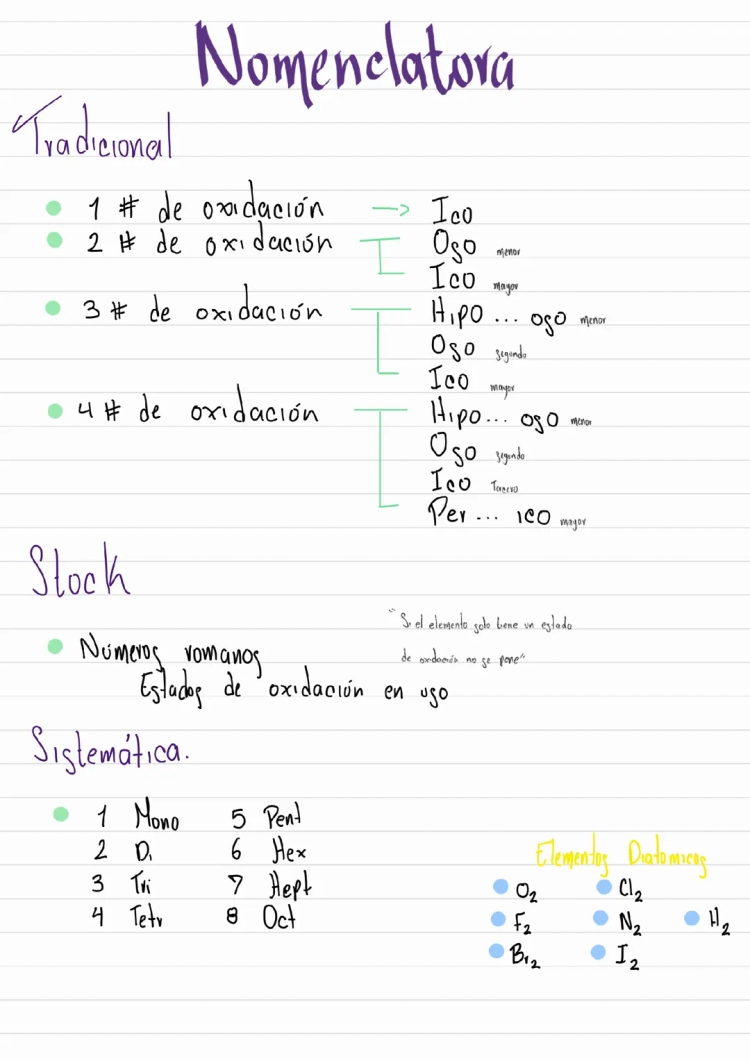 Nomenclatura
Tradicional
1 # de oxidación → Ico
2 # de oxidación Oso menor
Ico mayor
3 # de oxidación Hipo ... oso menor
Oso segundo
Ico mayor
4 # de oxidación Hipo... oso menor
Oso segundo
Ico Tercero
Per ... ico mayor
Stock
"Si el elemento solo tiene un estado
de oxidación no se pone"
Números romanos
Estados de oxidación en uso
Sistemática.
1 Mono 5 Pent
2 Di 6 Hex
3 Tri 7 Hept
4 Tetr 8 Oct
Elementos Diatomicos
O2 Cl2
F2 N2 H2
Br2 I2